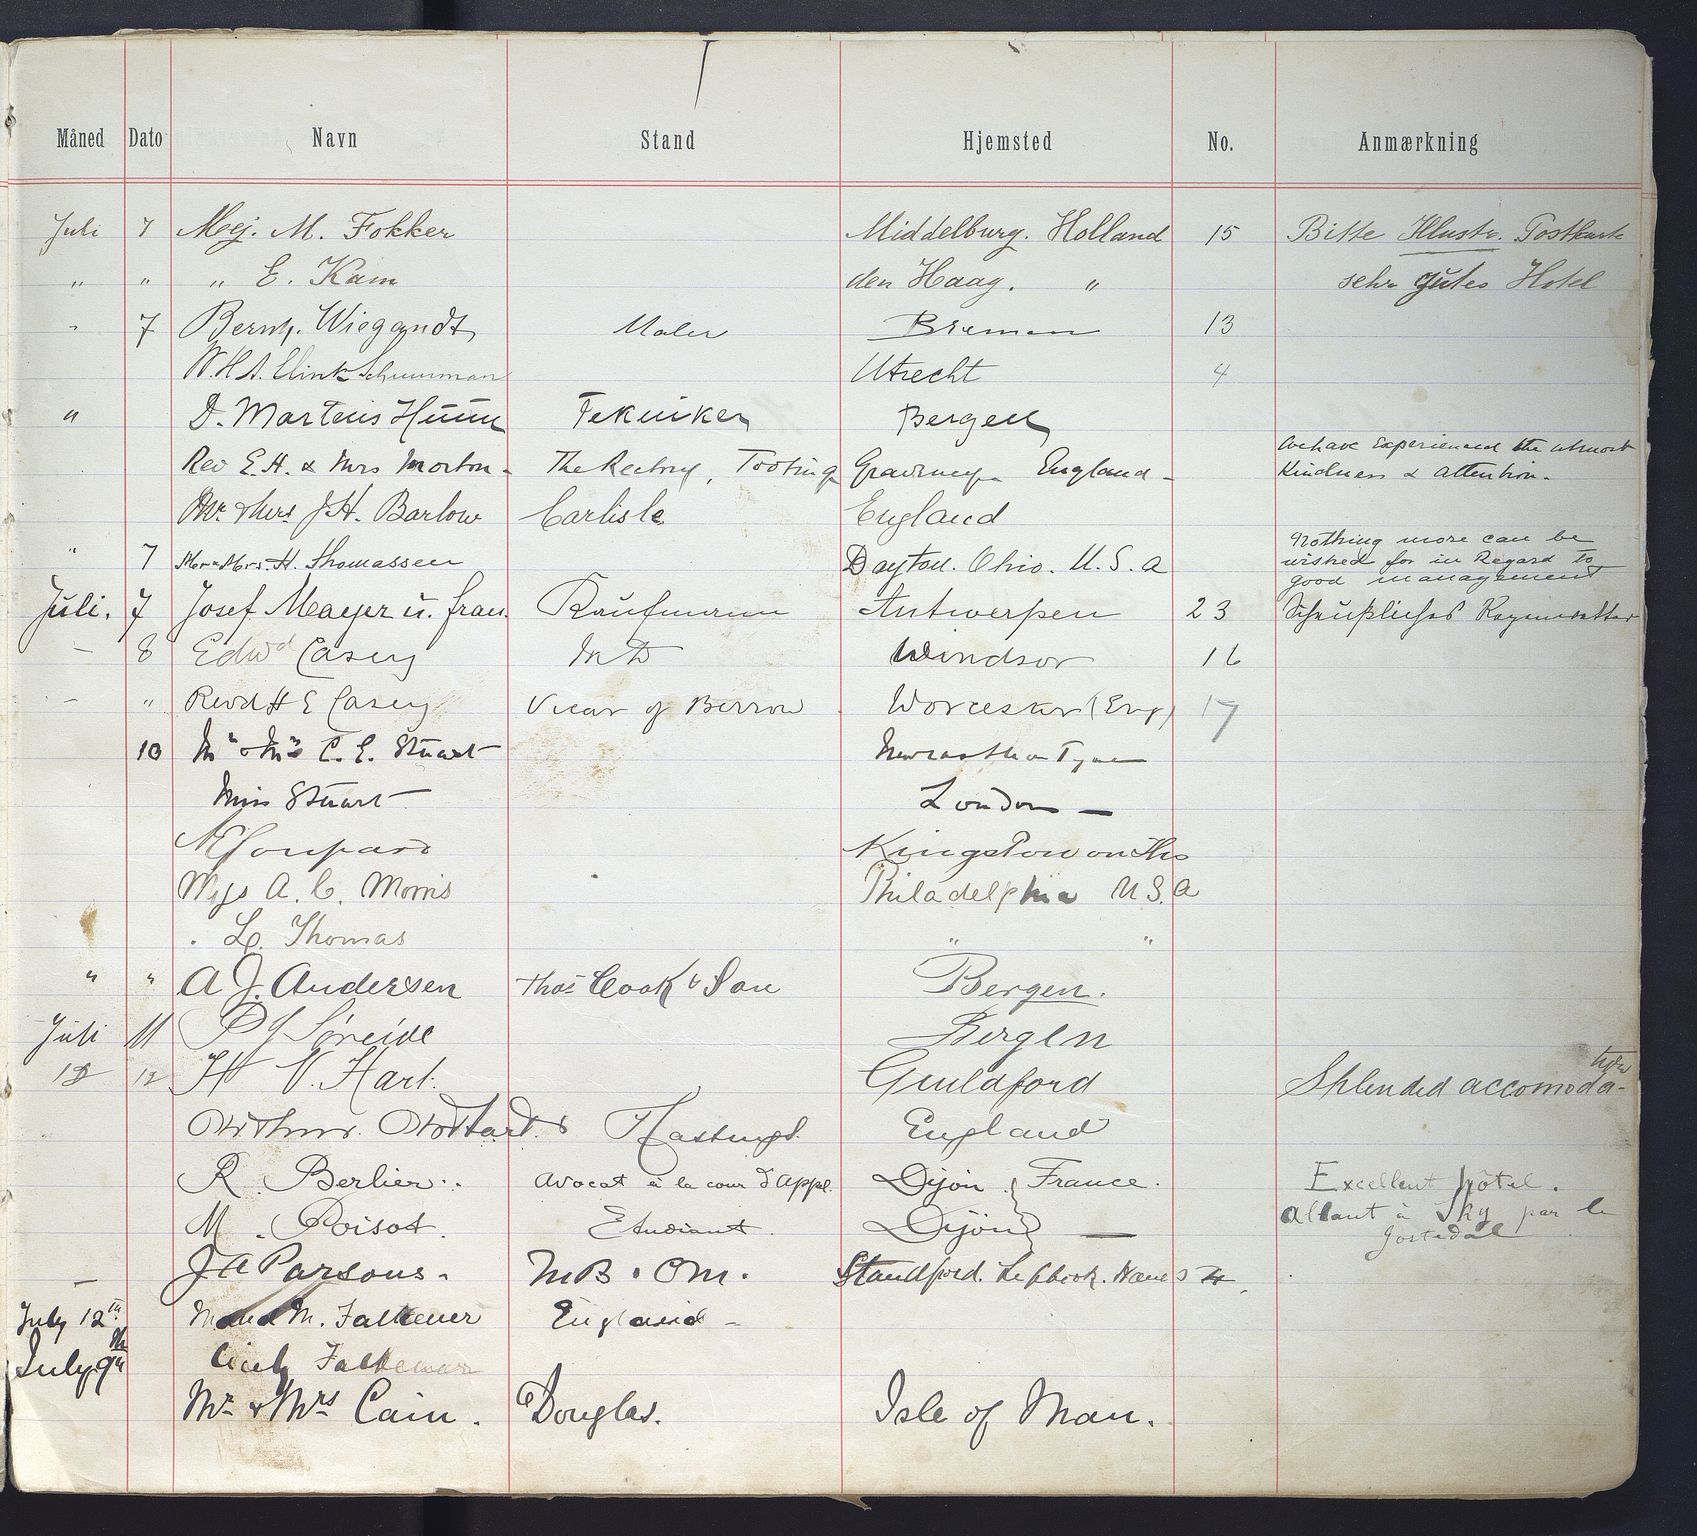 Måned Dato Navn Stand Hjemsted No. Anmærkning
Juli 7 Mej. M. Fokker Middelburg. Holland 15 Bitte Illustr. Postkarte
" " " E. Kam den Haag. " sehr gutes Hotel
" 7 Bernh. Wiegandt Maler Bremen 13
W.H.A. Elink Schuurman Utrecht 4
" D. Martens Tekniker Bergen
We have experienced the utmost
Rev E.H. & Mrs Morton - The Rectory, Tooting Graveney England -
Kindness & attention.
Mr & Mrs J H. Barlow Carlisle England
Nothing more can be
" 7 Mr & Mrs. H. Thomassen Dayton. Ohio. U. S. A
wished for in Regard to
good management
Juli. 7 Josef Meayer u. frau. Kaufmann Antwerpen 23 Scheußliches Regenwetter
- 8 Edwd Casey MD Windsor 16
- " Revd H E Casey Vicar of Berrow Worcester (Eng) 17
10 Mr & Mrs C. E. Stuart Newcastle on Tyne
Miss Stuart London -
Kingston on Ths
A. C. Morris Philadelphia U.S.A
. L. Thomas " "
" " A J. Andersen Thos Cook & Son Bergen.
Juli 11 P J Søreide Bergen
12 12 H V. Hart. Guildford Splended accomoda-
tion
Arthur Hastings. England
R. Berlier. Avocat à la cour d'Appel. Dijon. France. Excellent hôtel.
M. Poisot. Etudiant. Dijon - Allant à Sky par le
Jostedal
- J A Parsons. MB. CM. Standford. Hants
July 12th Maud M. Falkener England -
July 9th Cicely Falkener
Mr & Mrs Cain. Douglas. Isle of Man.